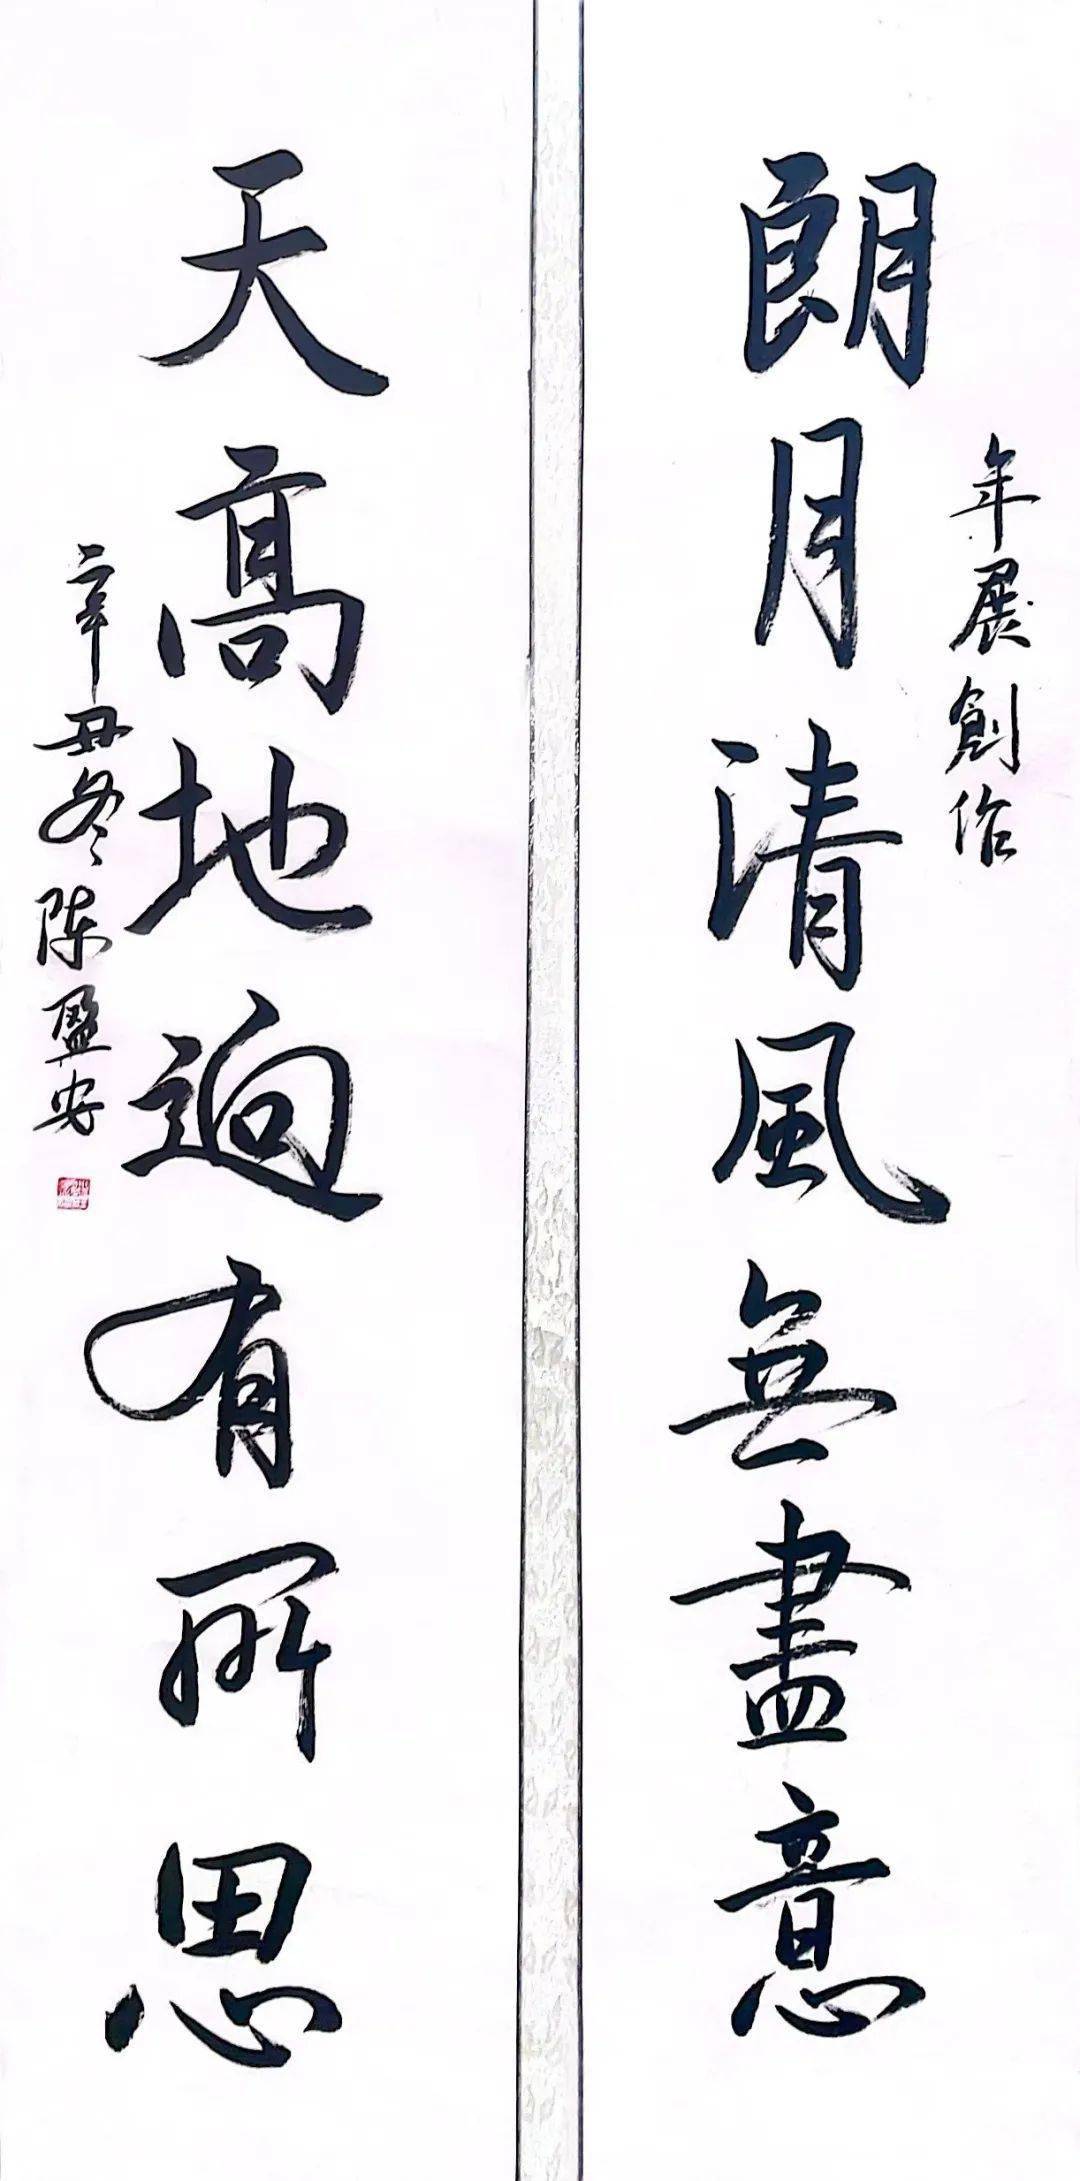 年展創作
朗月清風無盡意
天高地迥有所思
辛丑冬陈盈安